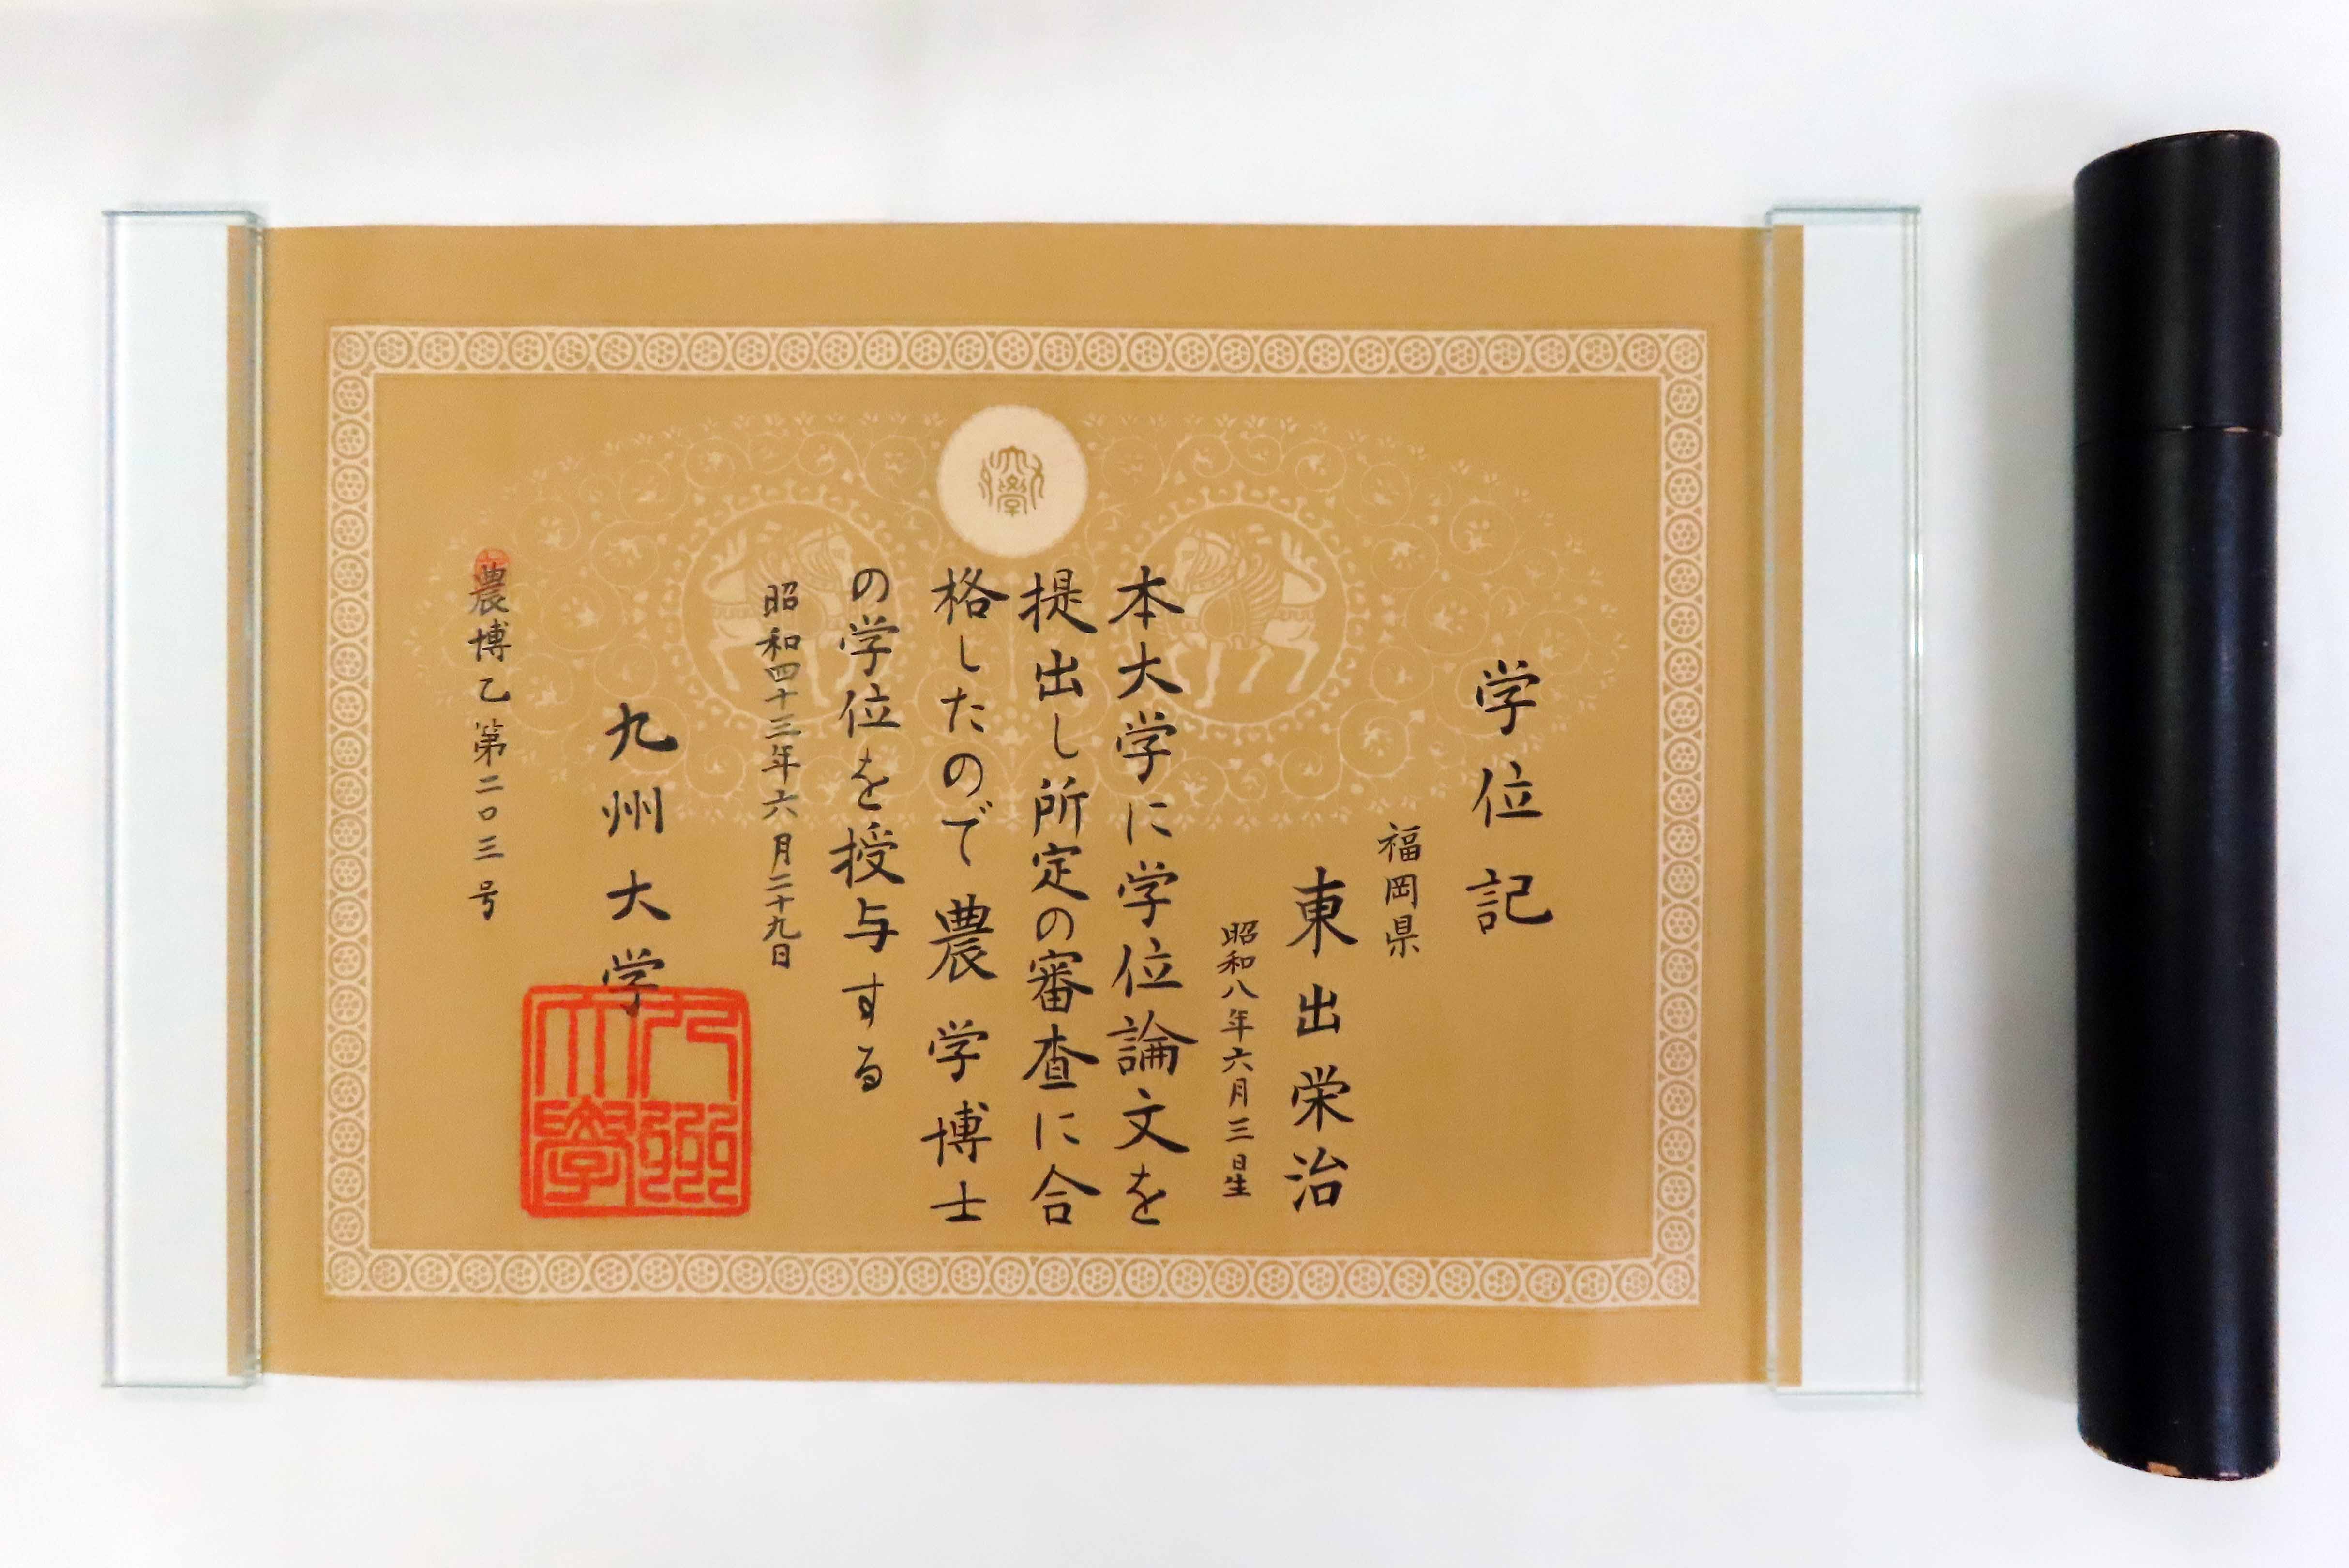 学位記
福岡県
東出栄治
昭和八年六月三日生
本大学に学位論文を
提出し所定の審査に合
格したので農学博士
の学位を授与する
昭和四十三年六月二十九日
九州大学
九州大學
農博乙第二〇三号